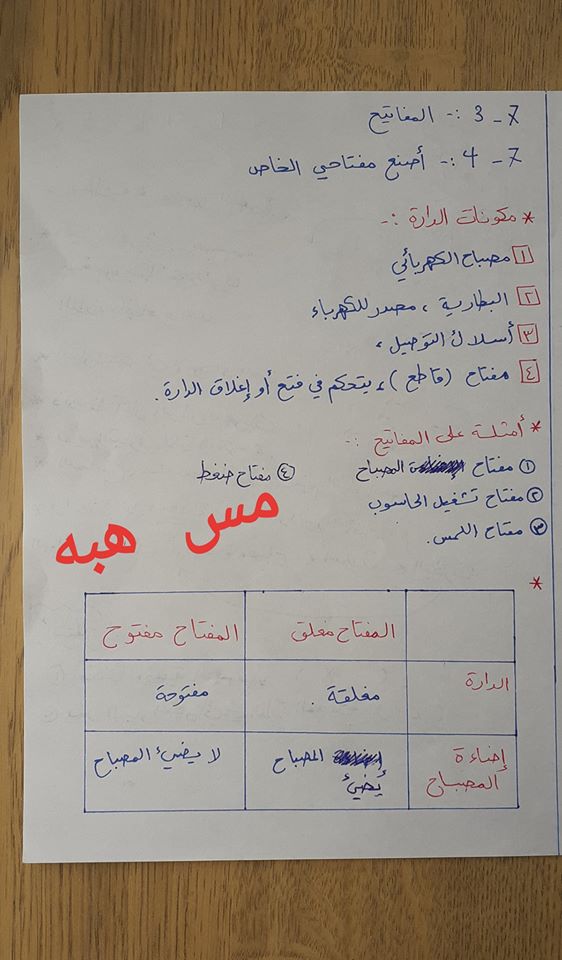 7 - 3 :- المفاتيح
7 - 4 :- أصنع مفتاحي الخاص
* مكونات الدارة :-
١ مصباح الكهربائي
٢ البطارية ، مصدر للكهرباء
٣ أسلاك التوصيل ،
٤ مفتاح (قاطع) ، يتحكم في فتح أو إغلاق الدارة .
* أمثلة على المفاتيح :-
١ مفتاح المصباح ٤ مفتاح ضغط
٢ مفتاح تشغيل الحاسوب
٣ مفتاح اللمس .
مس هبه
*
المفتاح مغلق المفتاح مفتوح
الدارة مغلقة . مفتوحة
إضاءة المصباح المصباح يُضيئ لا يضيئ المصباح